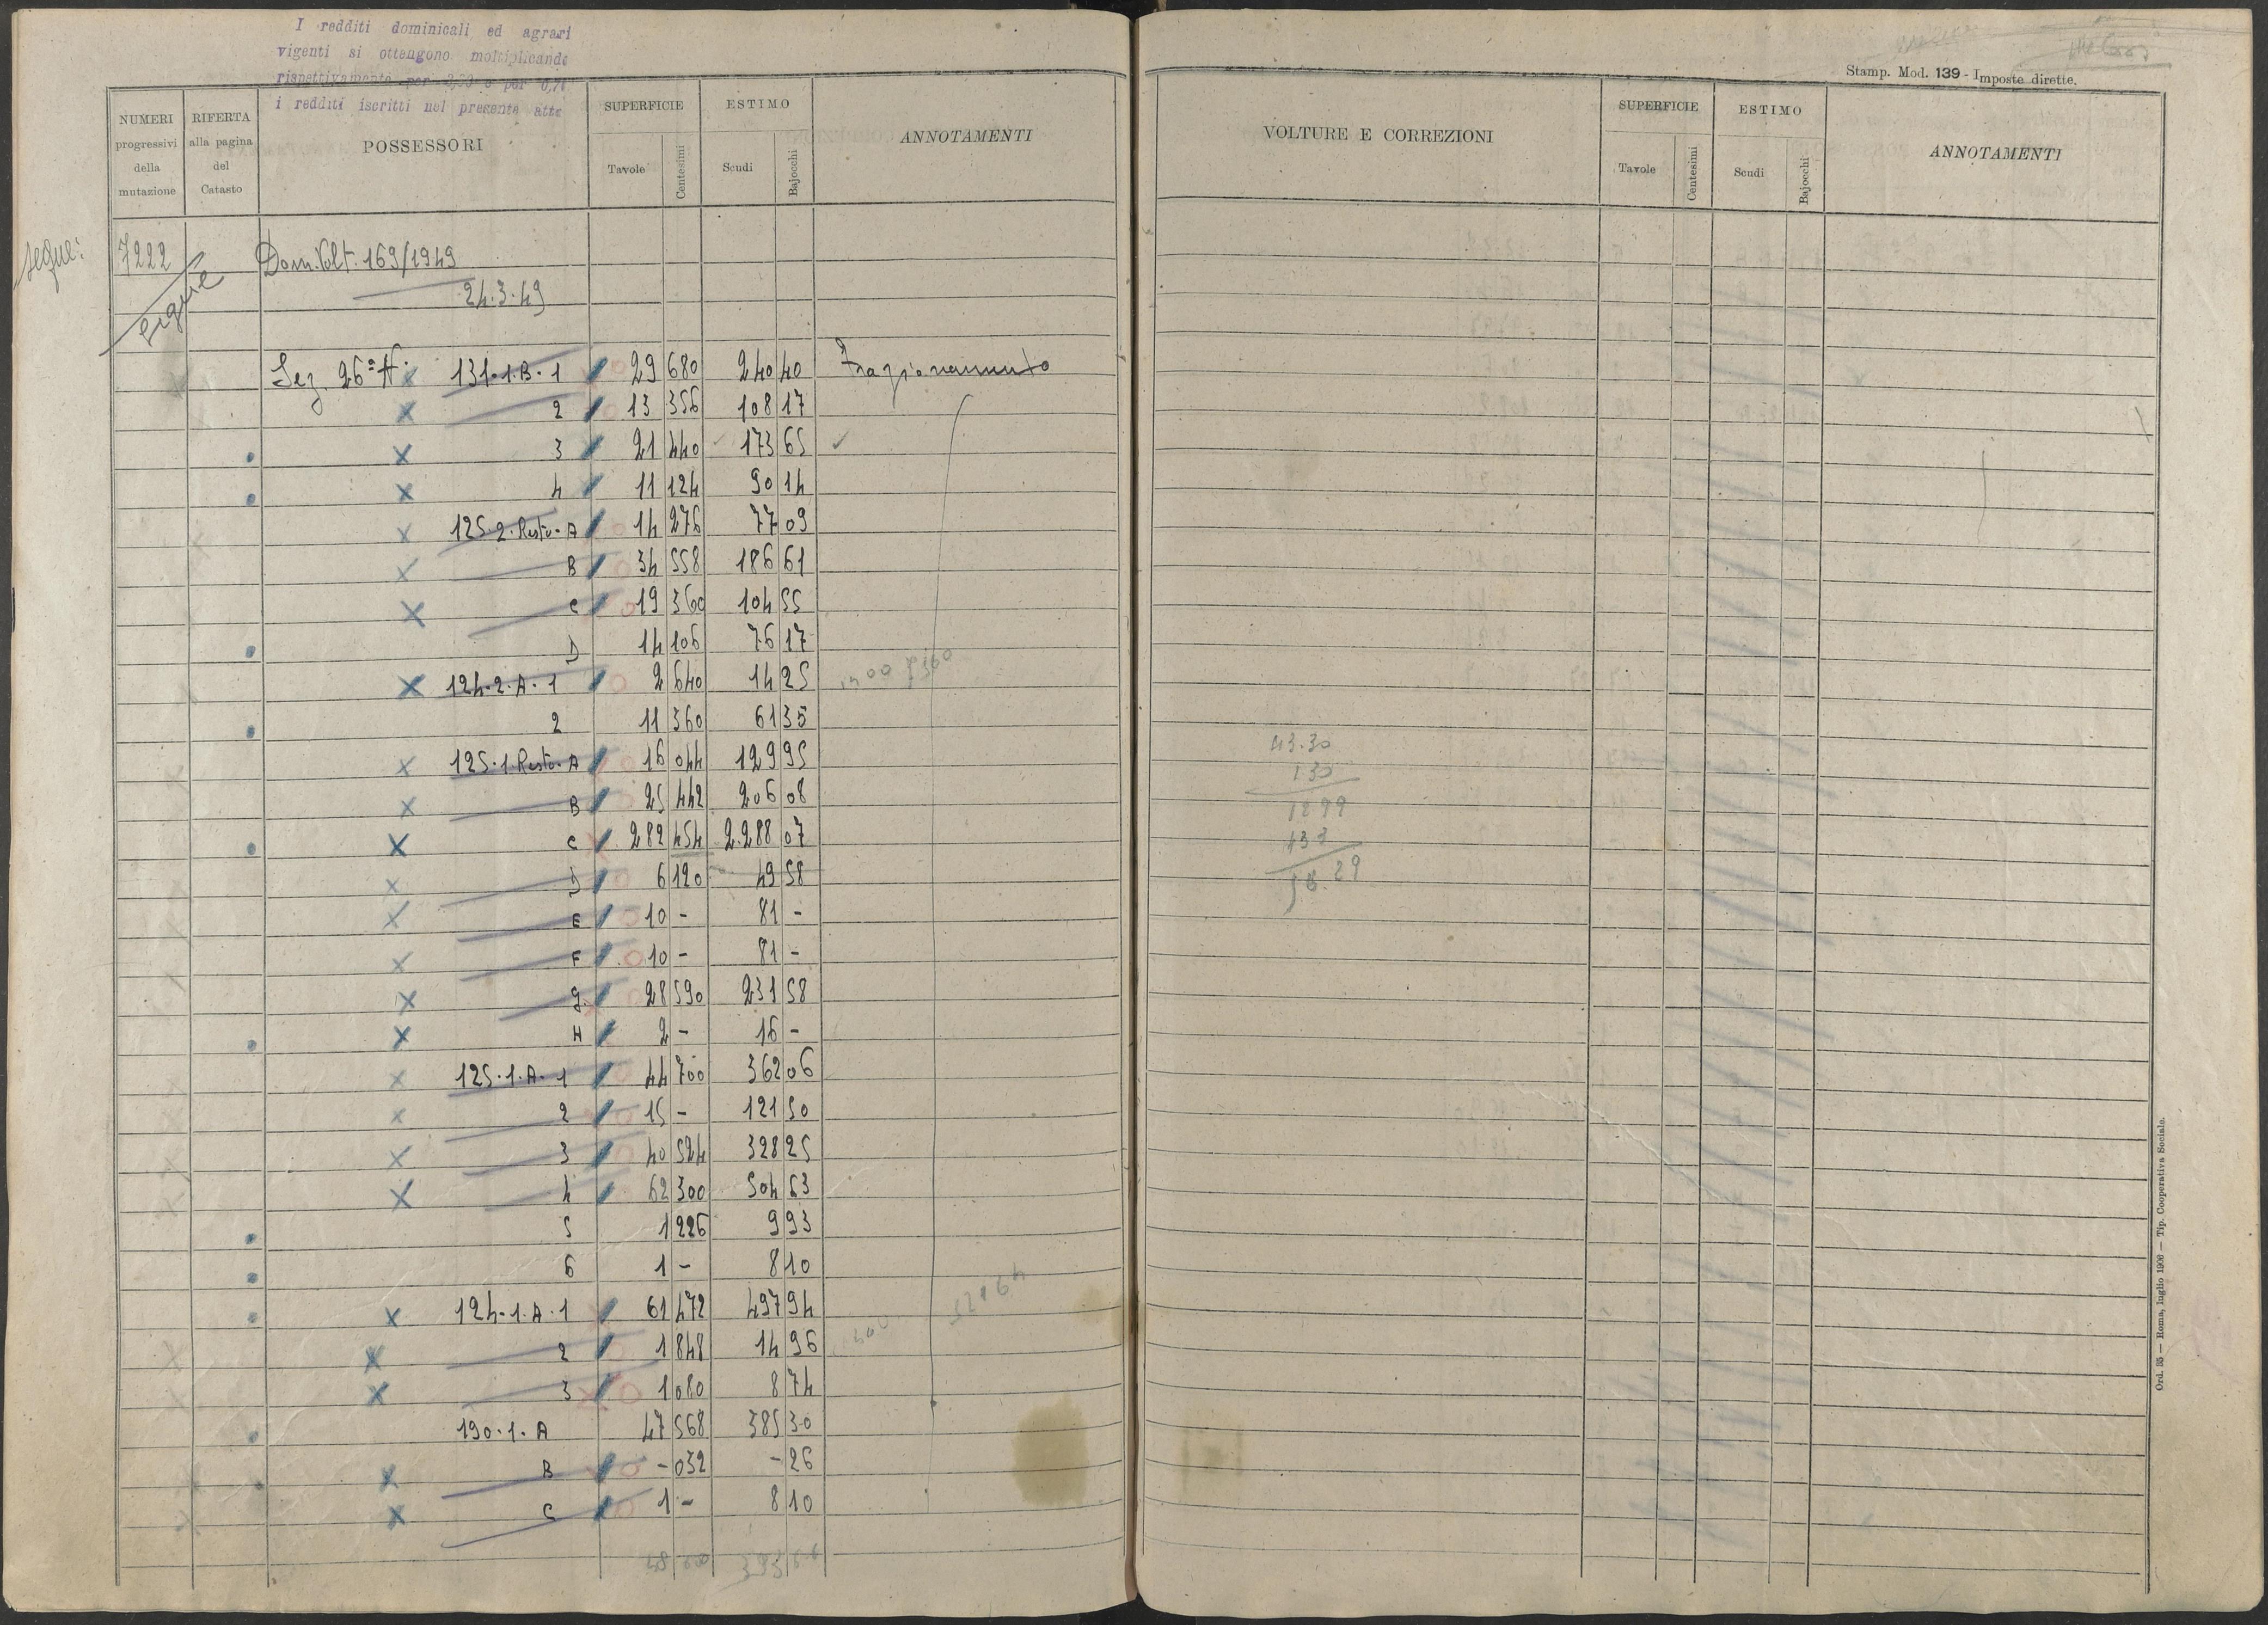 I redditi dominicali ed agrari
vigenti si ottengono moltiplicando
rispettivamente per e per
i redditi iscritti nel presente atto
NUMERI progressivi della mutazione
RIFERTA alla pagina del Catasto
POSSESSORI
SUPERFICIE Tavole Centesimi
ESTIMO Scudi Bajocchi
ANNOTAMENTI
segue: 7222 Dom. Volt. 169/1949
segue
24.3.49
Sez. 26ª 131-1.B-1 29 680 240 40 Frazionamento
2 13 356 108 17
3 21 440 173 65
4 11 124 90 14
125-2.Resto-A 14 276 77 09
B 34 558 186 61
C 19 360 104 55
D 14 106 76 17
124-2.A-1 2 640 14 25
2 11 360 61 35
125-1.Resto-A 16 044 129 95
B 25 442 206 08
C 282 454 2.288 07
D 6 120 49 58
E 10 - 81 -
F 10 - 81 -
G 28 590 231 58
H 2 - 16 -
125-1.A-1 44 700 362 06
2 15 - 121 50
3 40 524 328 25
4 62 300 504 63
5 1 226 9 93
6 1 - 8 10
124-1.A-1 61 472 497 94
2 1 848 14 96
3 1 080 8 74
190-1-A 47 568 385 30
B - 032 - 26
C 1 - 8 10
Stamp. Mod. 139 - Imposte dirette.
VOLTURE E CORREZIONI
SUPERFICIE Tavole Centesimi
ESTIMO Scudi Bajocchi
ANNOTAMENTI
43.30
130
1299
Ord. 35 — Roma, luglio 1906 — Tip. Cooperativa Sociale.